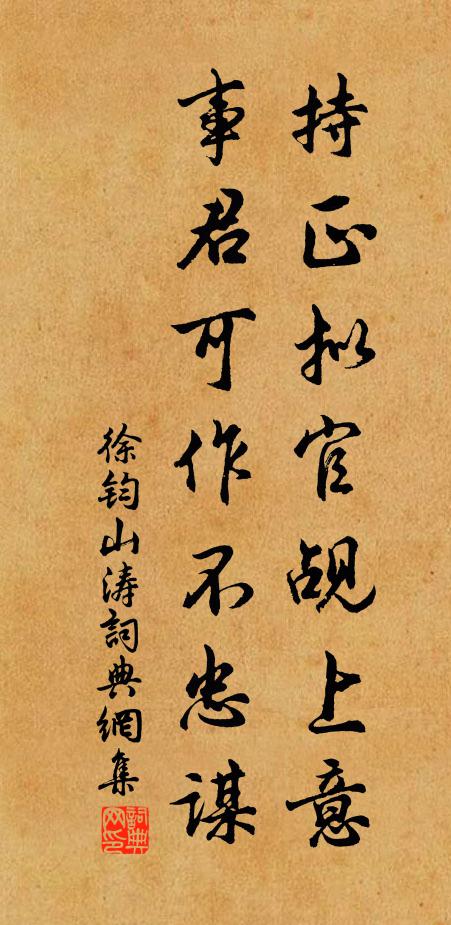 持正拟官觇上意
事君可作不忠谋
徐钧山涛詞典網集
詞典网印